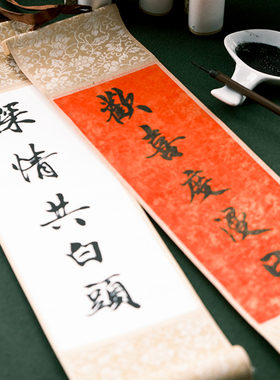 歡喜度漫日
深情共白頭